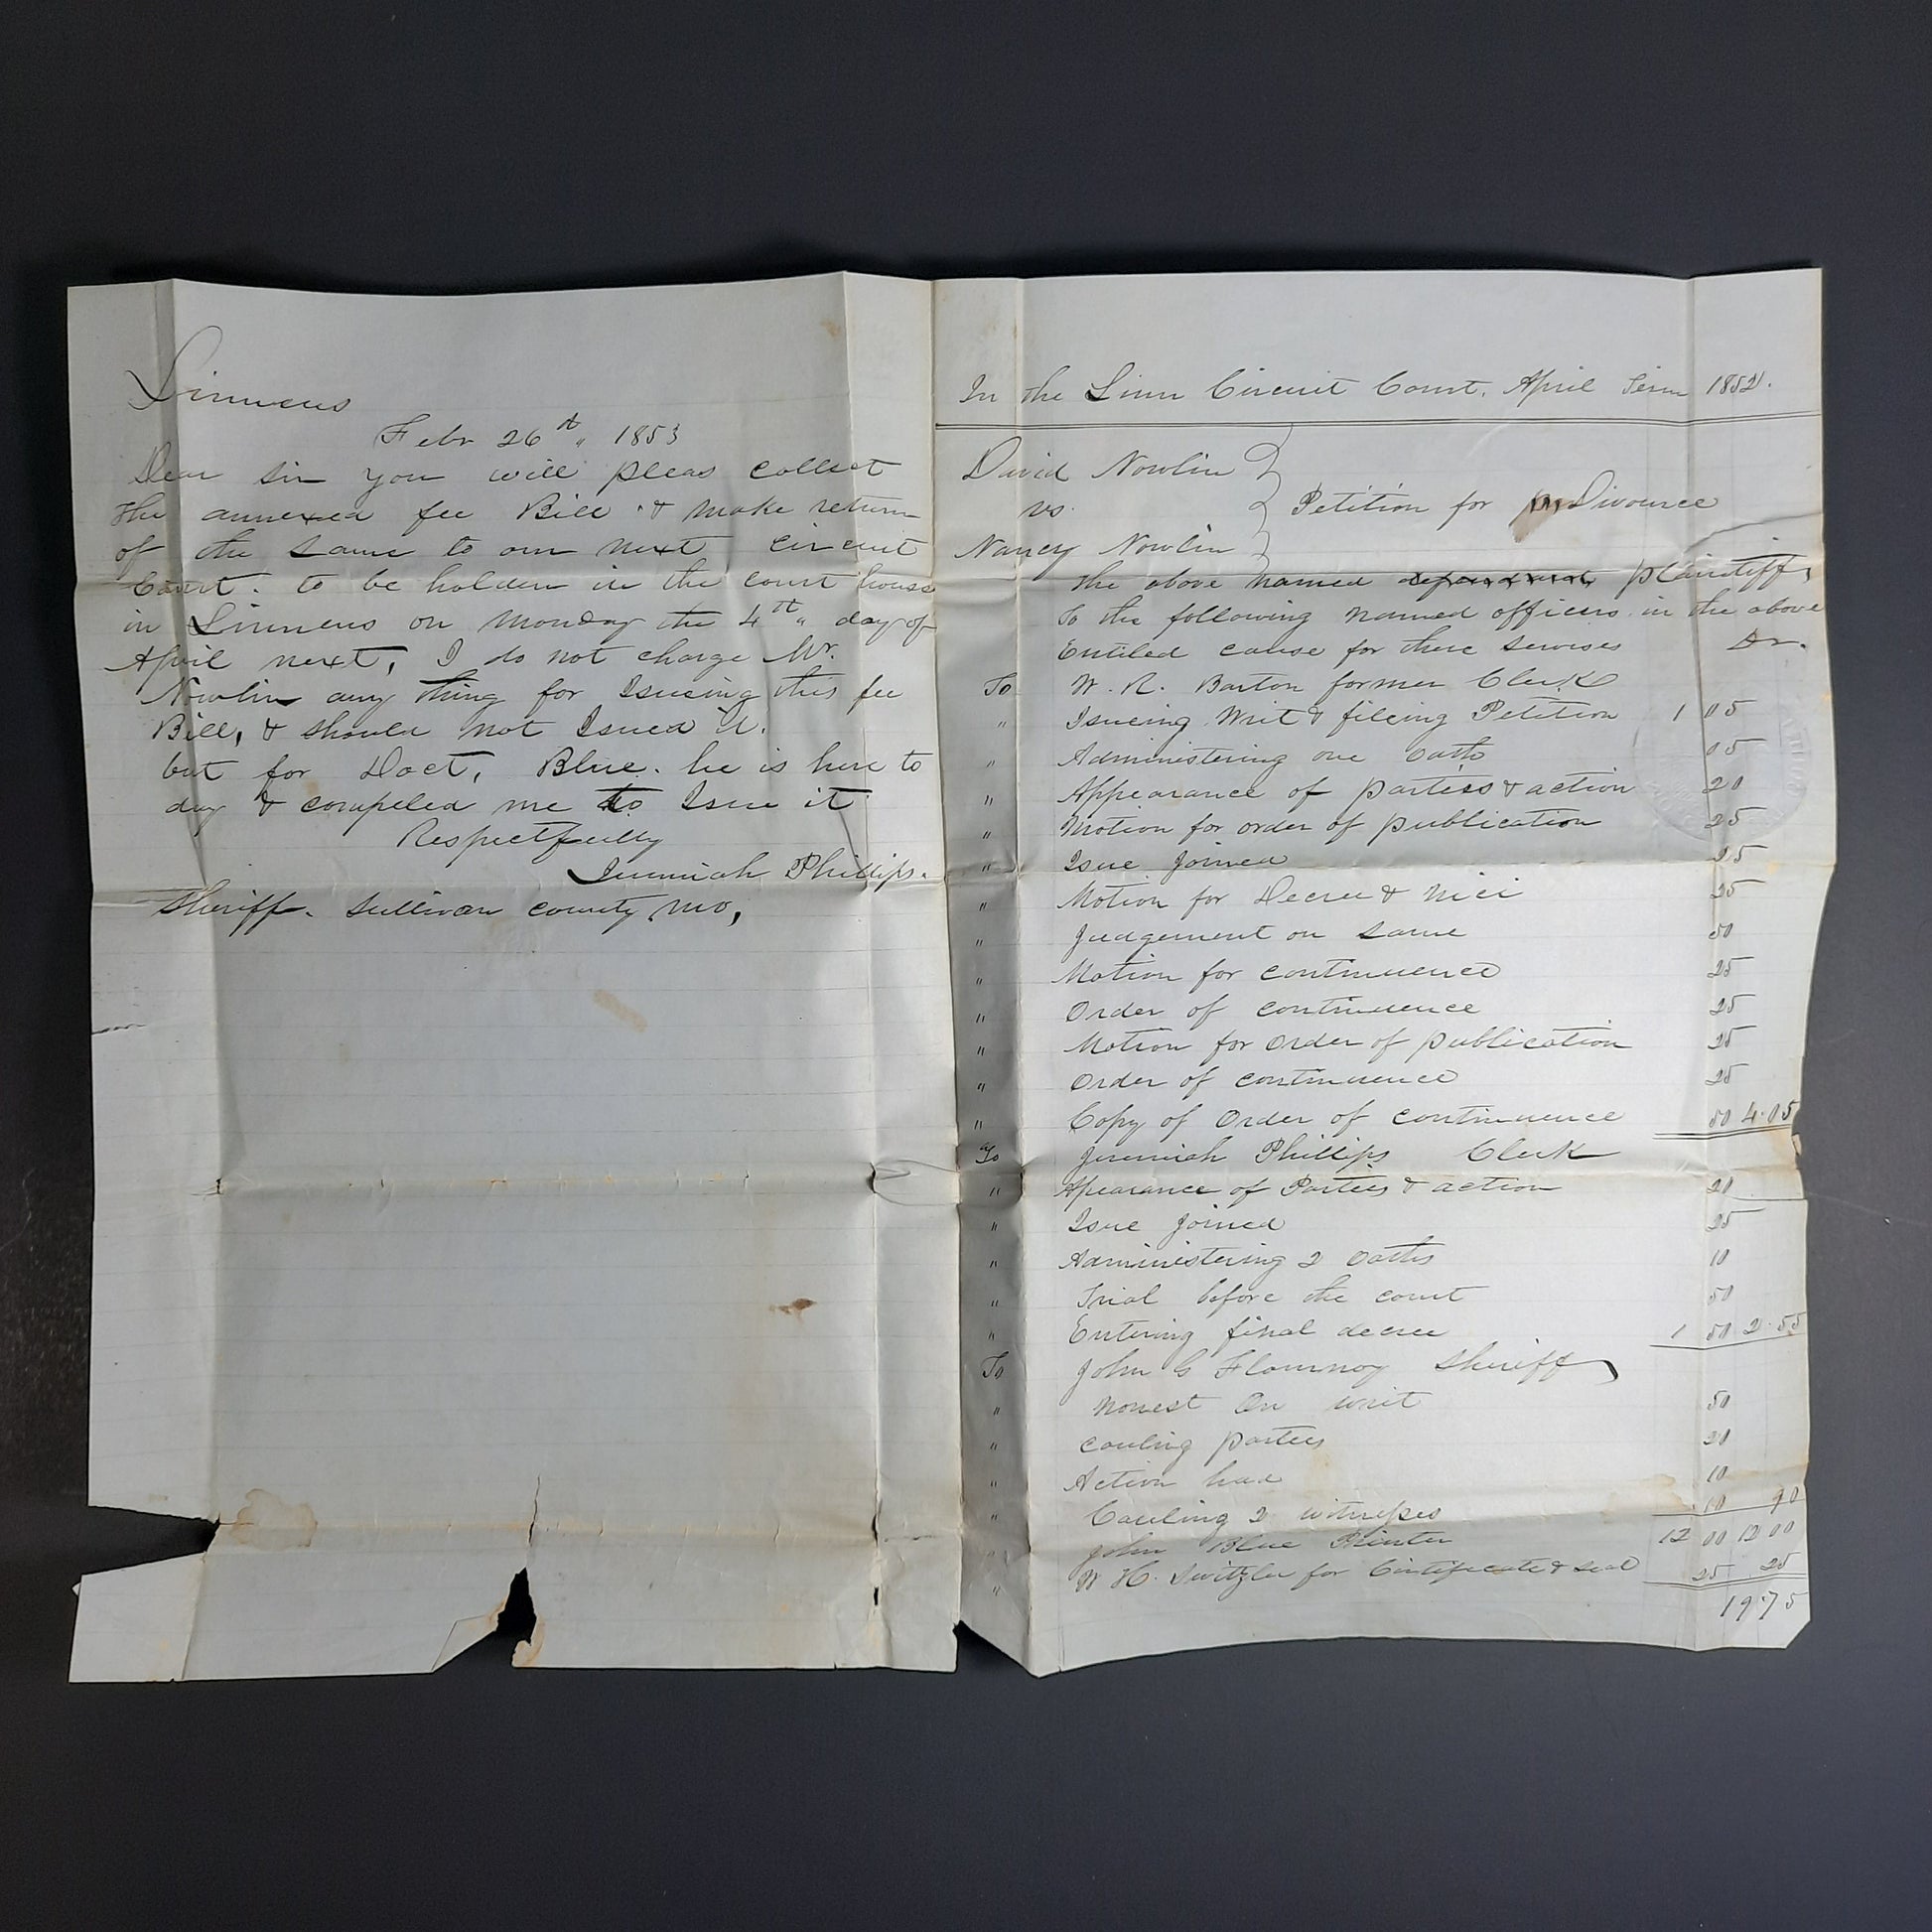 Linneus
Febr 26th, 1853
Dear sir you will pleas collect
the annexed fee Bill & make return
of the same to our next circuit
Court. to be holden in the court house
in Linneus on Monday the 4th day of
April next, I do not charge Mr.
Nowlin any thing for Isusing this fee
Bill, & should not Isued it.
but for Doct, Blue. he is here to
day & compeled me to Isue it
Respectfully
Jeremiah Phillips.
Sheriff. Sullivan county Mo,
In the Linn Circuit Court. April Term 1852.
David Nowlin
vs.
Petition for Divource
Nancy Nowlin
the above named defendant plaintiff,
To the following named officers in the above
Entiled cause for there servises Dr.
To W. R. Barton former Clerk
" Isueing Writ & fileing Petition 1 05
" Administering one oath 05
" Appearance of parties & action 20
" Motion for order of publication 25
" Isue joined 25
" Motion for Decree & nici 25
" Judgement on same 50
" Motion for continuence 25
" Order of continuence 25
" Motion for Order of publication 25
" Order of continuence 25
" Copy of Order of continuence 50 4.05
To Jeremiah Phillips Clerk
" Apearance of Parties & action 20
" Isue joined 25
" Administering 2 oaths 10
" Trial before the court 50
" Entering final decree 1 50 2.55
To John G Flournoy Sheriff
" Nonest On writ 50
" Cauling parties 20
" Action had 10
" Cauling 2 witnesses 10 90
" John Blue Printer 12 00 12 00
" W. H. Switzler for Certificate & seal 25 25
19.75